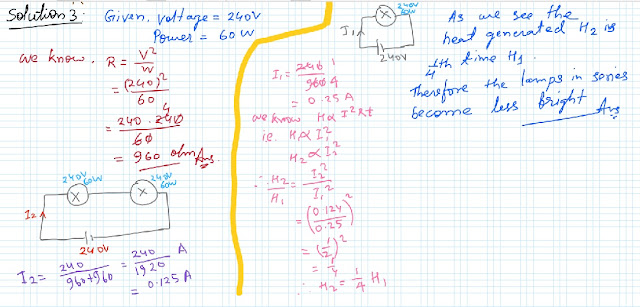 Solution 3: Given, Voltage = 240V
Power = 60 W
we know, R = V²/W
= (240)²/60
= 240 . 240/60
4
= 960 ohm Ans.
240V
60W
240V
60W
I2
240V
I2 = 240/960+960 = 240/1920 A
= 0.125 A
240V
60W
I1
240V
I1 = 240 1/960 4
= 0.25 A
we know H∝ I²Rt
ie. H∝ I²
H2 ∝ I2²
∴ H2/H1 = I2²/I1²
= (0.124/0.25)²
= (1/2)²
= 1/4
∴ H2 = 1/4 H1
As we see the
heat generated H2 is
1/4th time H1.
Therefore the lamps in series
become less bright Ans